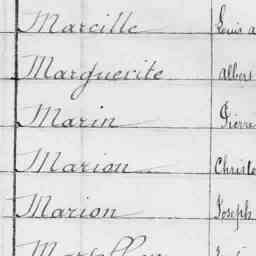 Marcille Louis
Marguerite Albert
Marin Pierre
Marion
Marion Joseph